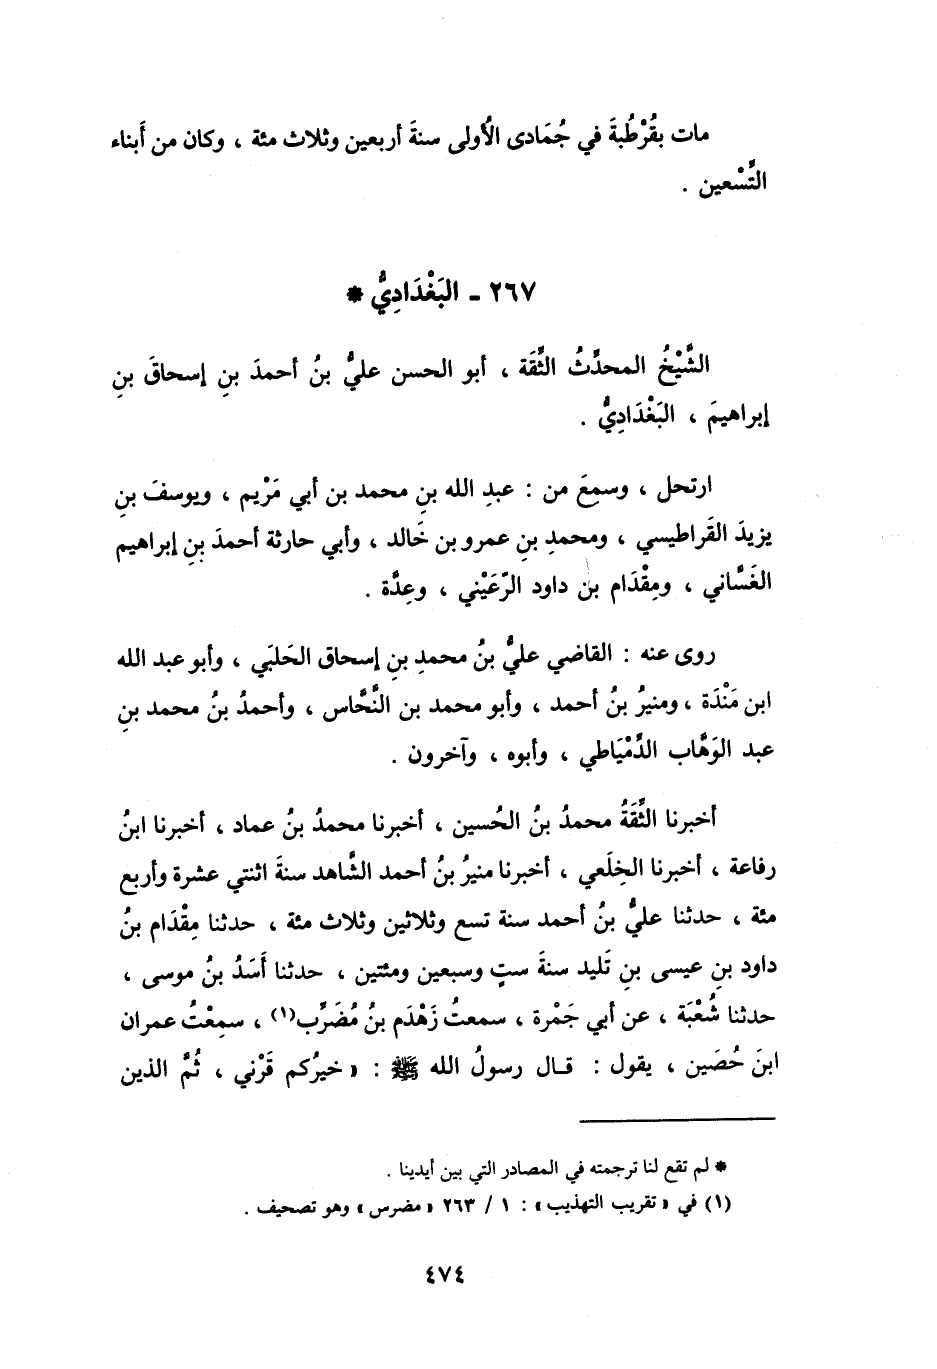 مات بقُرْطُبةَ في جُمَادى الأُولى سنةَ أربعين وثلاث مئة ، وكان من أَبناء
التِّسْعين .
٢٦٧ - البَغْدَادِيُّ *
الشَّيْخُ المحدِّثُ الثِّقَة ، أبو الحسن عليُّ بنُ أحمدَ بنِ إسحاقَ بنِ
إبراهيمَ ، البَغْدَادِيُّ .
ارتحل ، وسمِعَ من : عبدِ الله بنِ محمد بن أبي مَرْيم ، ويوسفَ بنِ
يزيدَ القَراطيسي ، ومحمدِ بنِ عمرو بن خَالد ، وأبي حارثة أحمدَ بنِ إبراهيم
الغَسَّاني ، ومِقْدَام بن داود الرّعَيْني ، وعِدَّة .
روى عنه : القاضي عليُّ بنُ محمدِ بنِ إسحاق الحَلبَي ، وأبو عبد الله
ابن مَنْدَة ، ومنيرُ بنُ أحمد ، وأبو محمد بن النَّحَّاس ، وأحمدُ بنُ محمد بنِ
عبد الوَهَّاب الدِّمْيَاطي ، وأبوه ، وآخرون .
أخبرنا الثِّقَةُ محمدُ بنُ الحُسين ، أخبرنا محمدُ بنُ عماد ، أخبرنا ابنُ
رفاعة ، أخبرنا الخِلَعي ، أخبرنا منيرُ بنُ أحمد الشَّاهد سنةَ اثنتي عشرة وأربع
مئة ، حدثنا عليُّ بنُ أحمد سنة تسع وثلاثين وثلاث مئة ، حدثنا مِقْدَام بنُ
داود بنِ عيسى بنِ تَليد سنةَ ستٍ وسبعين ومئتين ، حدثنا أَسَدُ بنُ موسى ،
حدثنا شُعْبَة ، عن أبي جَمْرة ، سمعتُ زَهْدَم بنُ مُضَرِّب(١) ، سمِعْتُ عمران
ابنَ حُصَين ، يقول : قـال رسولُ الله ﷺ : « خيرُكم قَرْني ، ثُمَّ الذين
* لم تقع لنا ترجمته في المصادر التي بين أيدينا .
(١) في « تقريب التهذيب » : ١ / ٢٦٣ « مضرس » وهو تصحيف .
٤٧٤